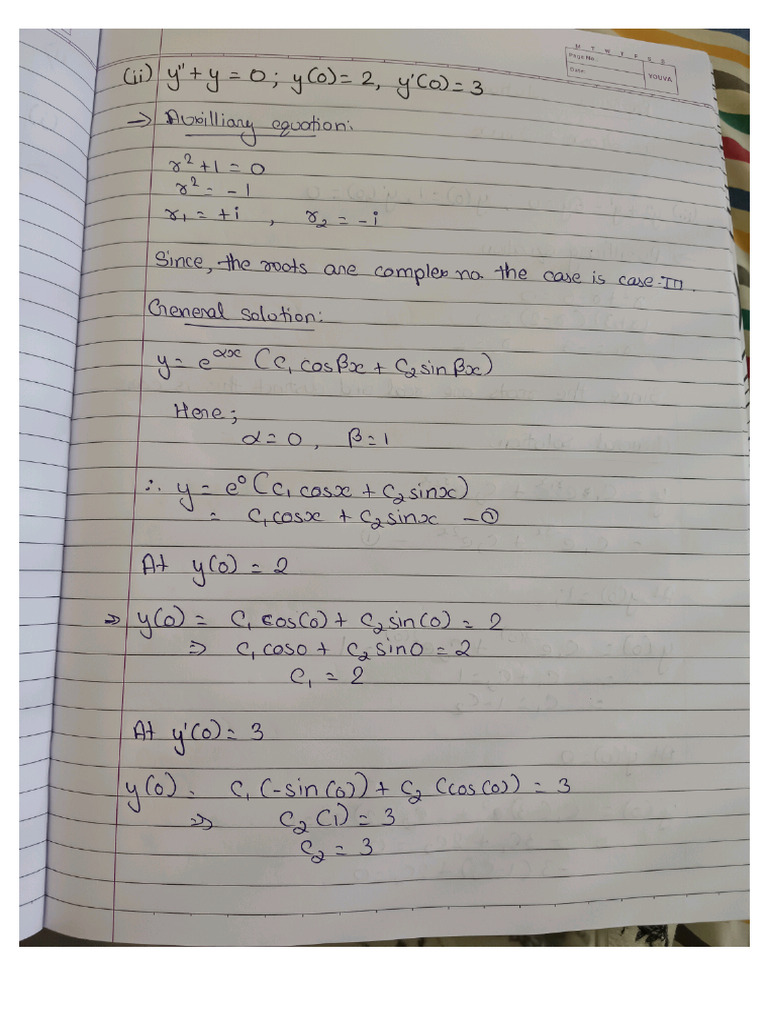 M T W T F S S
Page No.:
Date:
YOUVA
(ii) y'' + y = 0 ; y(0) = 2, y'(0) = 3
→ Auxilliary equation:
r² + 1 = 0
r² = - 1
r₁ = +i , r₂ = - i
Since, the roots are complex no. the case is case-III.
General solution:
y = e^αx (C₁ cosβx + C₂ sin βx)
Here;
α = 0 , β = 1
∴ y = e⁰ (C₁ cosx + C₂ sinx)
= C₁ cosx + C₂ sinx - ①
At y(0) = 2
⇒ y(0) = C₁ cos(0) + C₂ sin(0) = 2
⇒ C₁ cos0 + C₂ sin0 = 2
C₁ = 2
At y'(0) = 3
y(0) = C₁ (-sin(0)) + C₂ (cos(0)) = 3
⇒ C₂ (1) = 3
C₂ = 3